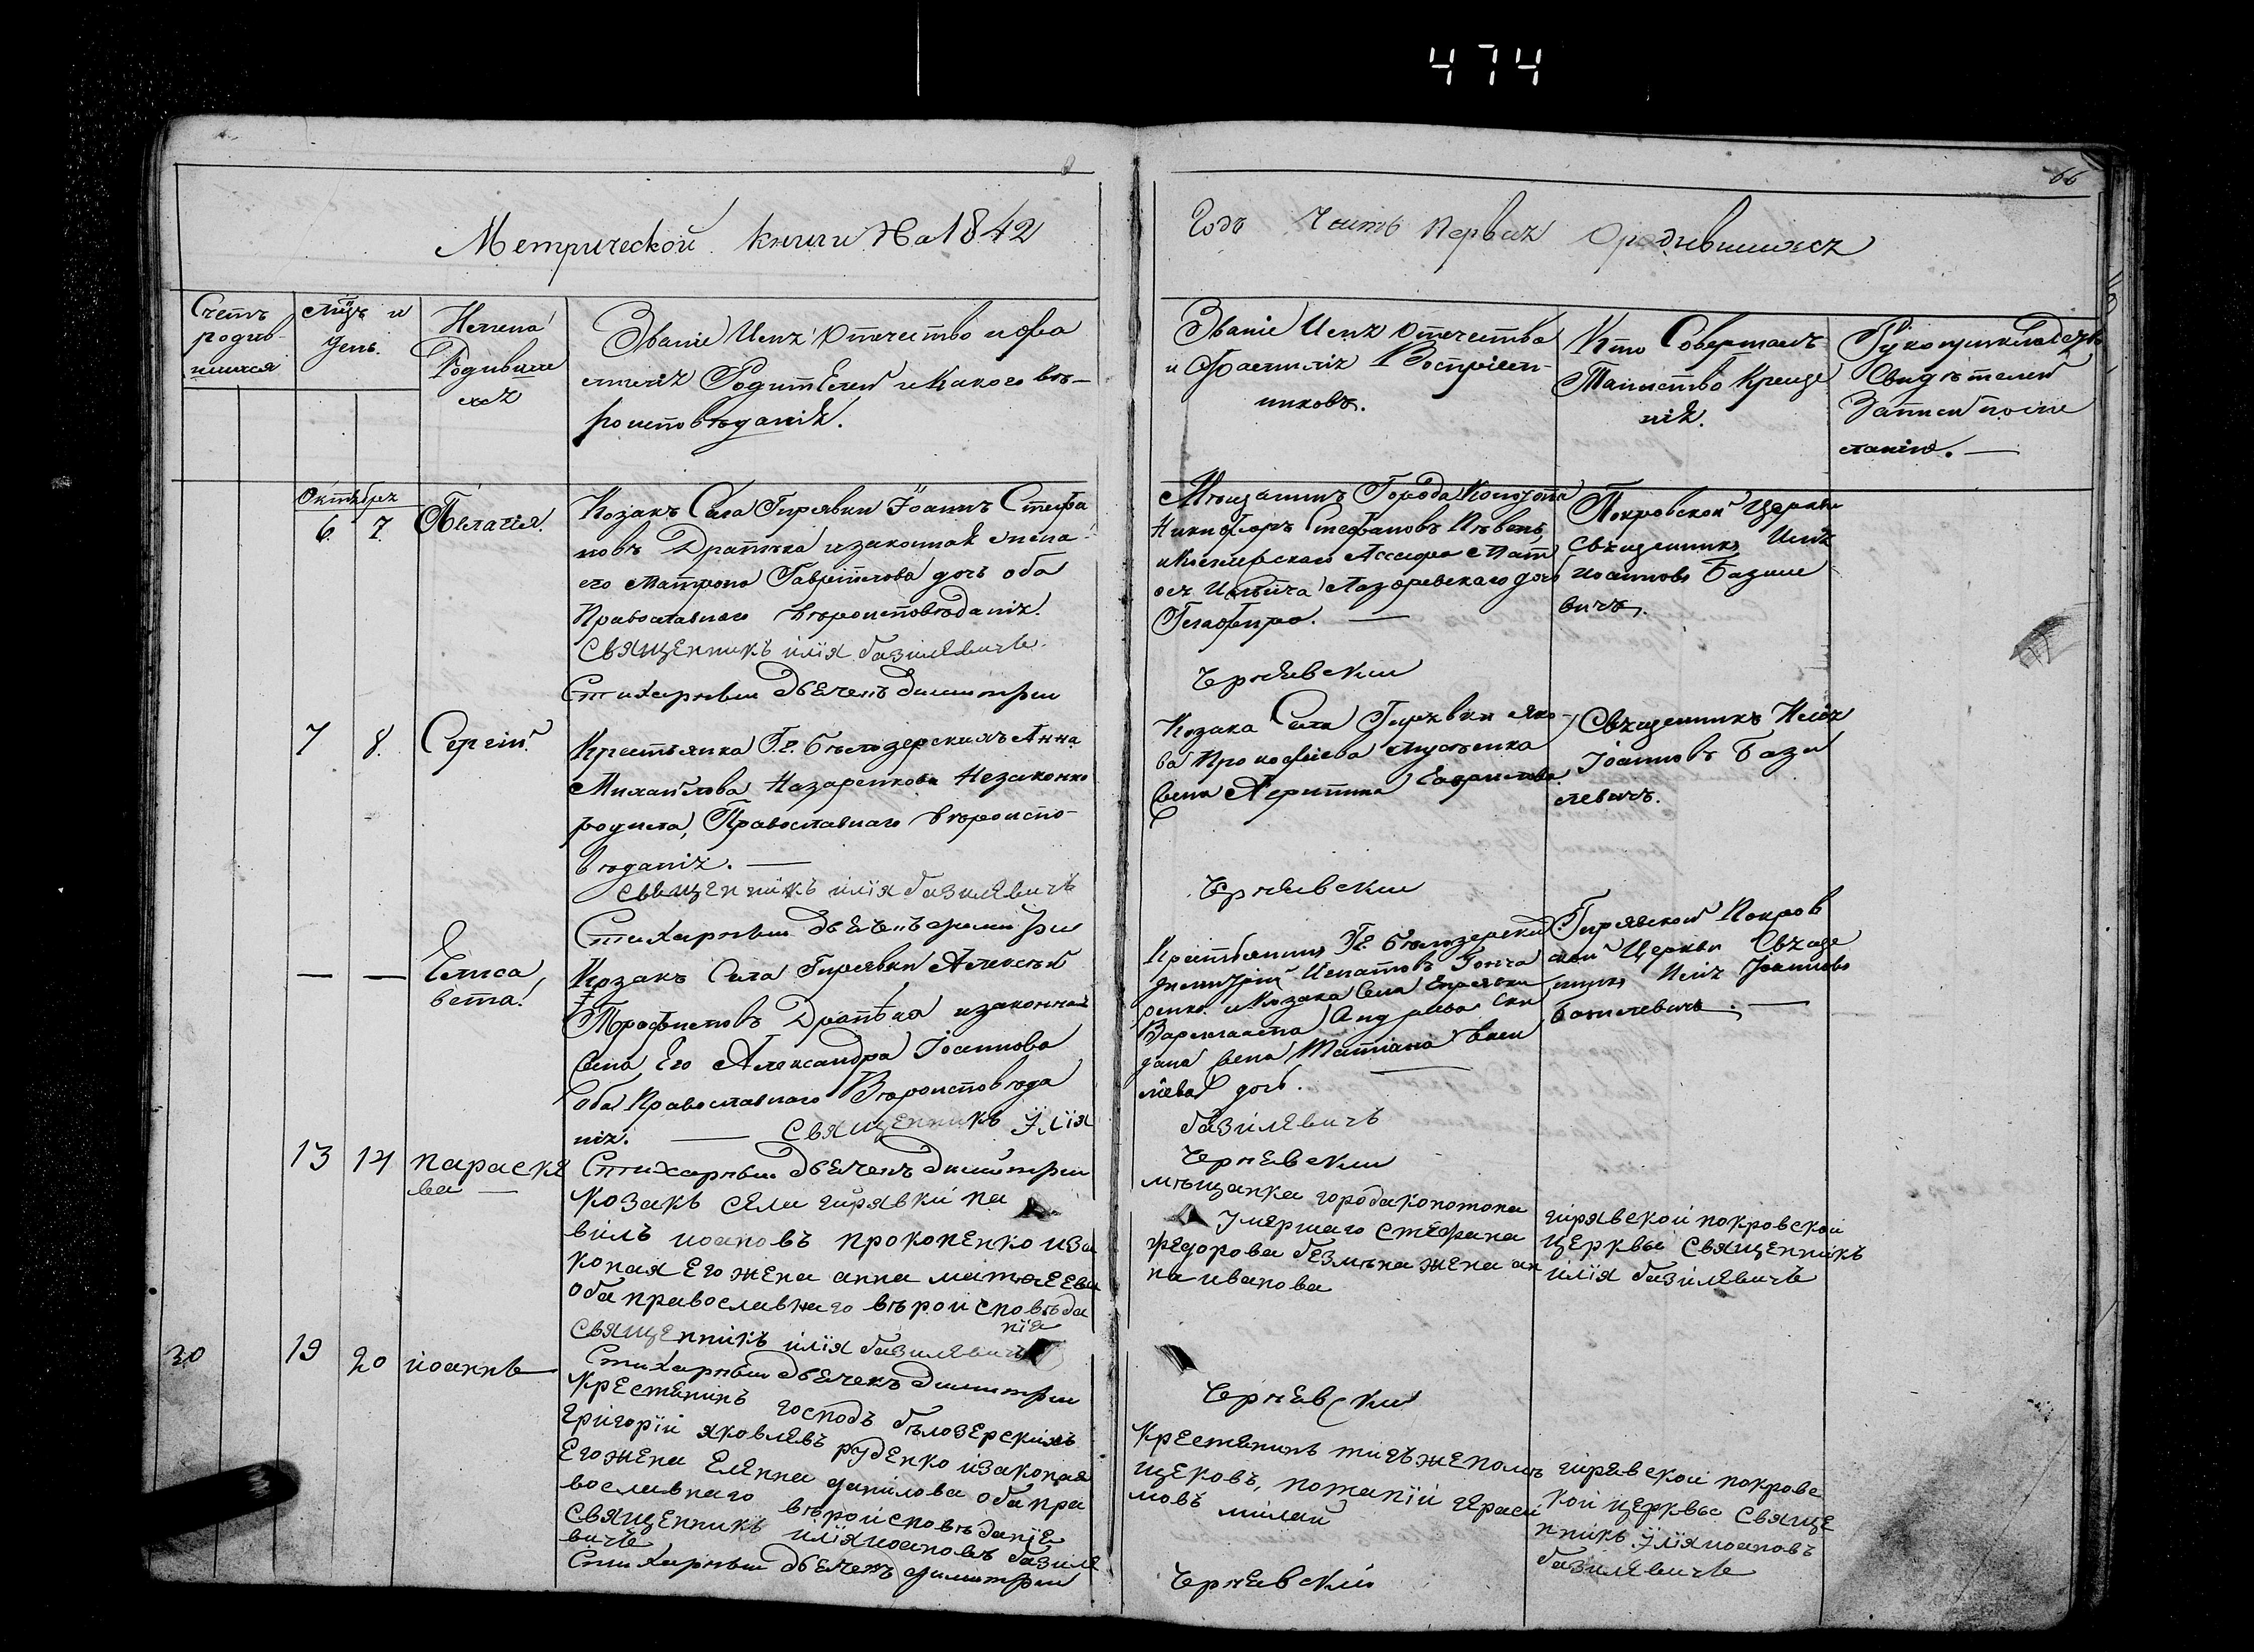 474
66
Метрической книги На 1842
Годъ Часть Первая О родившихся
Счетъ
родив-
шихся
Мцъ и
день.
Имена
Родивши
хся
Званіе Имя Отечество и фа
милія Родителей и какого вѣ-
роисповѣданія.
Званіе Имя Отечество
и Фамилія Воспріем-
никовъ.
Кто Совершалъ
Таинство Креще
нія.
Рукоприкладство
Свидѣтелей
Записи по же
ланію.
Октября
6 7
Пелагія.
Козакъ Села Гирявки Іоаннъ Стефа
новъ Дратѣка и законная жена
его Матрона Гавріилова дочь оба
Православнаго вѣроисповѣданія.
Священникъ илія базилевичъ
Стихарный дьечекъ димитрии
Мѣщанинъ Города Конотопа
Никифоръ Стефановъ Пѣвень,
Лазаревскаго дочь
Глафира.
Чернѣвскии
Покровской Церкви
Священникъ Илія
Иоанновъ Базиле
вичъ.
7 8.
Сергій.
Крестьянка Г.г. Бѣлозерскихъ Анна
Михайлова Назаренкова Незаконно
родила, Православнаго вѣроиспо-
вѣданія.
Священникъ илія базилевичъ
Стихарный дьечекъ димитрии
Козака Села Гирявки Яко-
ва Прокофіева
жена Гаврилова
Чернѣвскии
Священникъ Илія
Іоанновъ Бази
левичъ.
— —
Елиса
вета.
Козакъ Села Гирявки Алексѣй
Трофимовъ Дратѣка и законная
жена Его Александра Іоаннова
Оба Православнаго Вѣроисповѣда
нія. Священникъ Илія
Стихарный дьечекъ димитрии
Крестьянинъ Гг. Бѣлозерски
Димитрій Игнатовъ Гонча
ренко и Козака Села Гирявки
Варлаама Андреева Ски
дана жена Татіана Васи
ліева дочь.
базилевичъ
Чернѣвскии
Гирявской Покров
ской Церкви Свяще
нникъ Илія Іоанновъ
Базилевичъ.
13 14
параске
ва
козакъ села гирявки па
вилъ иоановъ прокопенко иза
коная Его жена анна матфеева
оба православнаго вѣроисповѣда
нія
священникъ илія базилевичъ
Стихарный дьечекъ димитрии
мѣщанка города конотопа
умершаго стефана
федорова безмѣна жена ан
на иванова
Чернѣвскии
гирявской покровской
церквы священникъ
илія базилевичъ
30
19 20
иоаннъ
крестянинъ господъ бѣлозерскихъ
григорій яковлевъ руденко изаконая
Его жена Еленна данилова оба пра
вославнаго вѣроисповѣданіе
священникъ иліяиоановъ базиле
вичъ
Стихарный дьечекъ димитрии
крестянинъ тихъ же помѣ
щековъ, потапій гераси
мовъ милай
Чернѣвский
гирявской покровс
кой церквы свяще
нникъ иліяиоановъ
базилевичъ